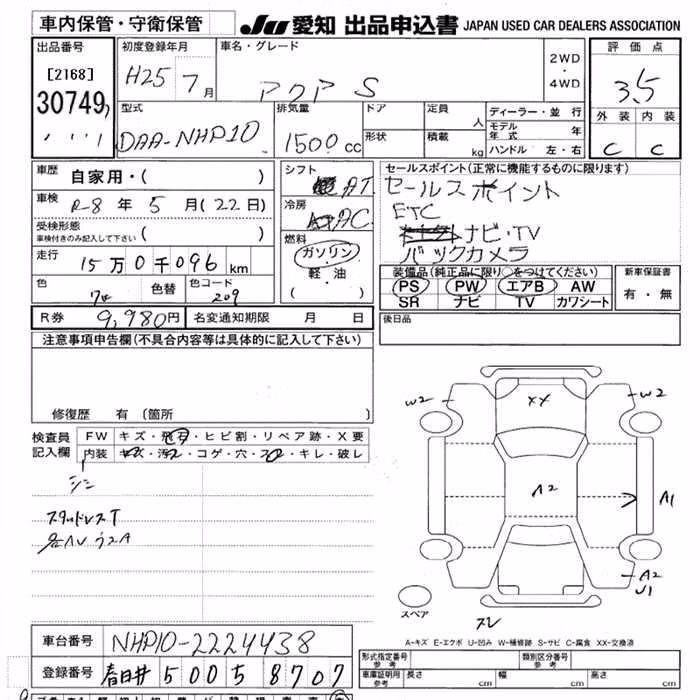 車内保管・守衛保管
JU 愛知 出品申込書 JAPAN USED CAR DEALERS ASSOCIATION
出品番号
[2168]
30749
初度登録年月
H25 7月
車名・グレード
アクア S
2WD
・
4WD
評価点
3.5
外装 内装
C C
型式
DAA-NHP10
排気量
1500 cc
ドア
形状
定員 人
積載 kg
ディーラー・並行
モデル年式 年
ハンドル 左・右
車歴 自家用・( )
車検 R-8 年 5 月(22日)
受検形態
車検付きのみ記入して下さい ( )
走行 15万0千096 km
色 色替 色コード
209
シフト
AT
冷房
AC
燃料
ガソリン
軽・油
( )
セールスポイント(正常に機能するものに限ります)
セールスポイント
ETC
ナビ・TV
バックカメラ
装備品(純正品に限り○をつけてください)
PS PW エアB AW
SR ナビ TV カワシート
新車保証書
有・無
R券 9,980円 名変通知期限 月 日
後日品
注意事項申告欄(不具合内容等は具体的に記入して下さい)
修復歴 有 〔箇所 〕
検査員
記入欄
FW キズ・飛石・ヒビ割・リペア跡・X要
内装 キズ・汚れ・コゲ・穴・スレ・キレ・破レ
スタッドレスT
W2 XX W2
A2 A1
A2
U1
スペア
スレ
A-キズ E-エクボ U-凹み W-補修跡 S-サビ C-腐食 XX-交換済
車台番号 NHP10-2224438
登録番号 春日井 500 ち 8707
形式指定番号
参考
類別区分番号
参考
車庫証明用
参考
長さ cm 幅 cm 高さ cm